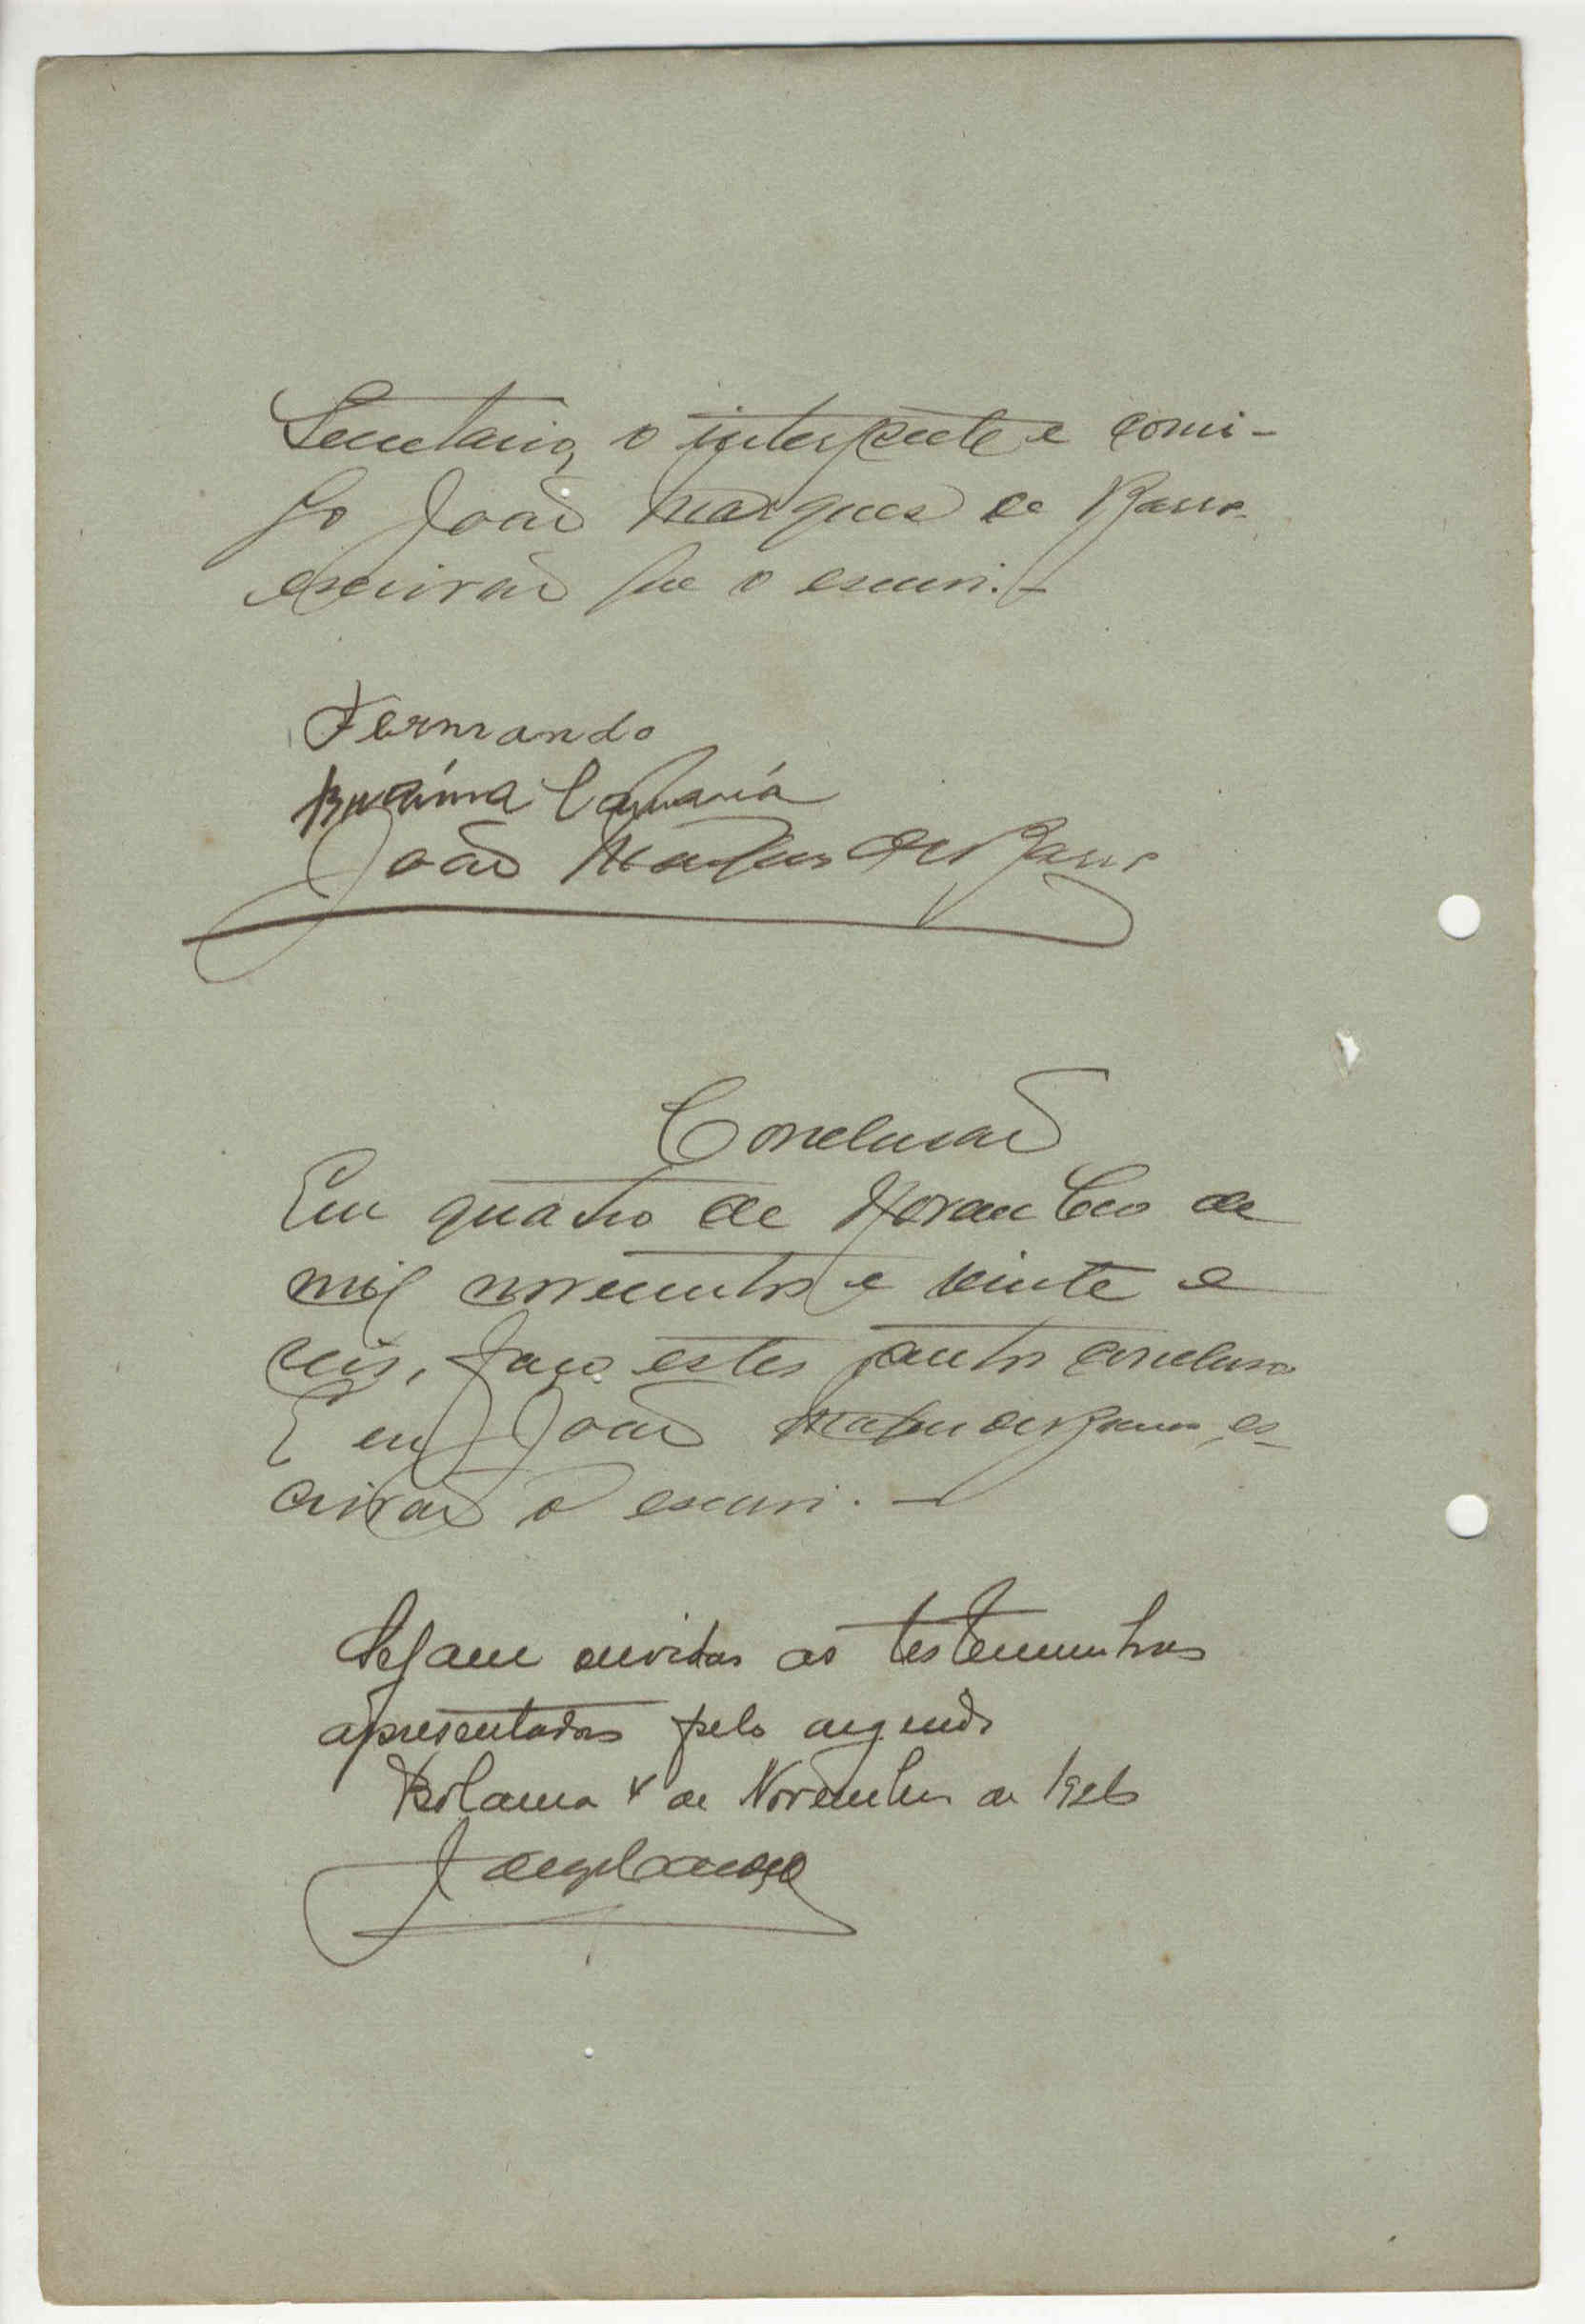 Secretario, o interprete e comi-
go João Marques de Barros
escrivão que o escrevi. -
Fernando
Buraima
João Marques de Barros
Conclusão
Em quatro de Novembro de
mil novecentos e vinte e
seis, faço estes autos conclusos
E eu João Marques de Barros, es-
crivão o escrevi. -
Sejam ouvidas as testemunhas
apresentadas pelo arguido
Bolama 4 de Novembro de 1926